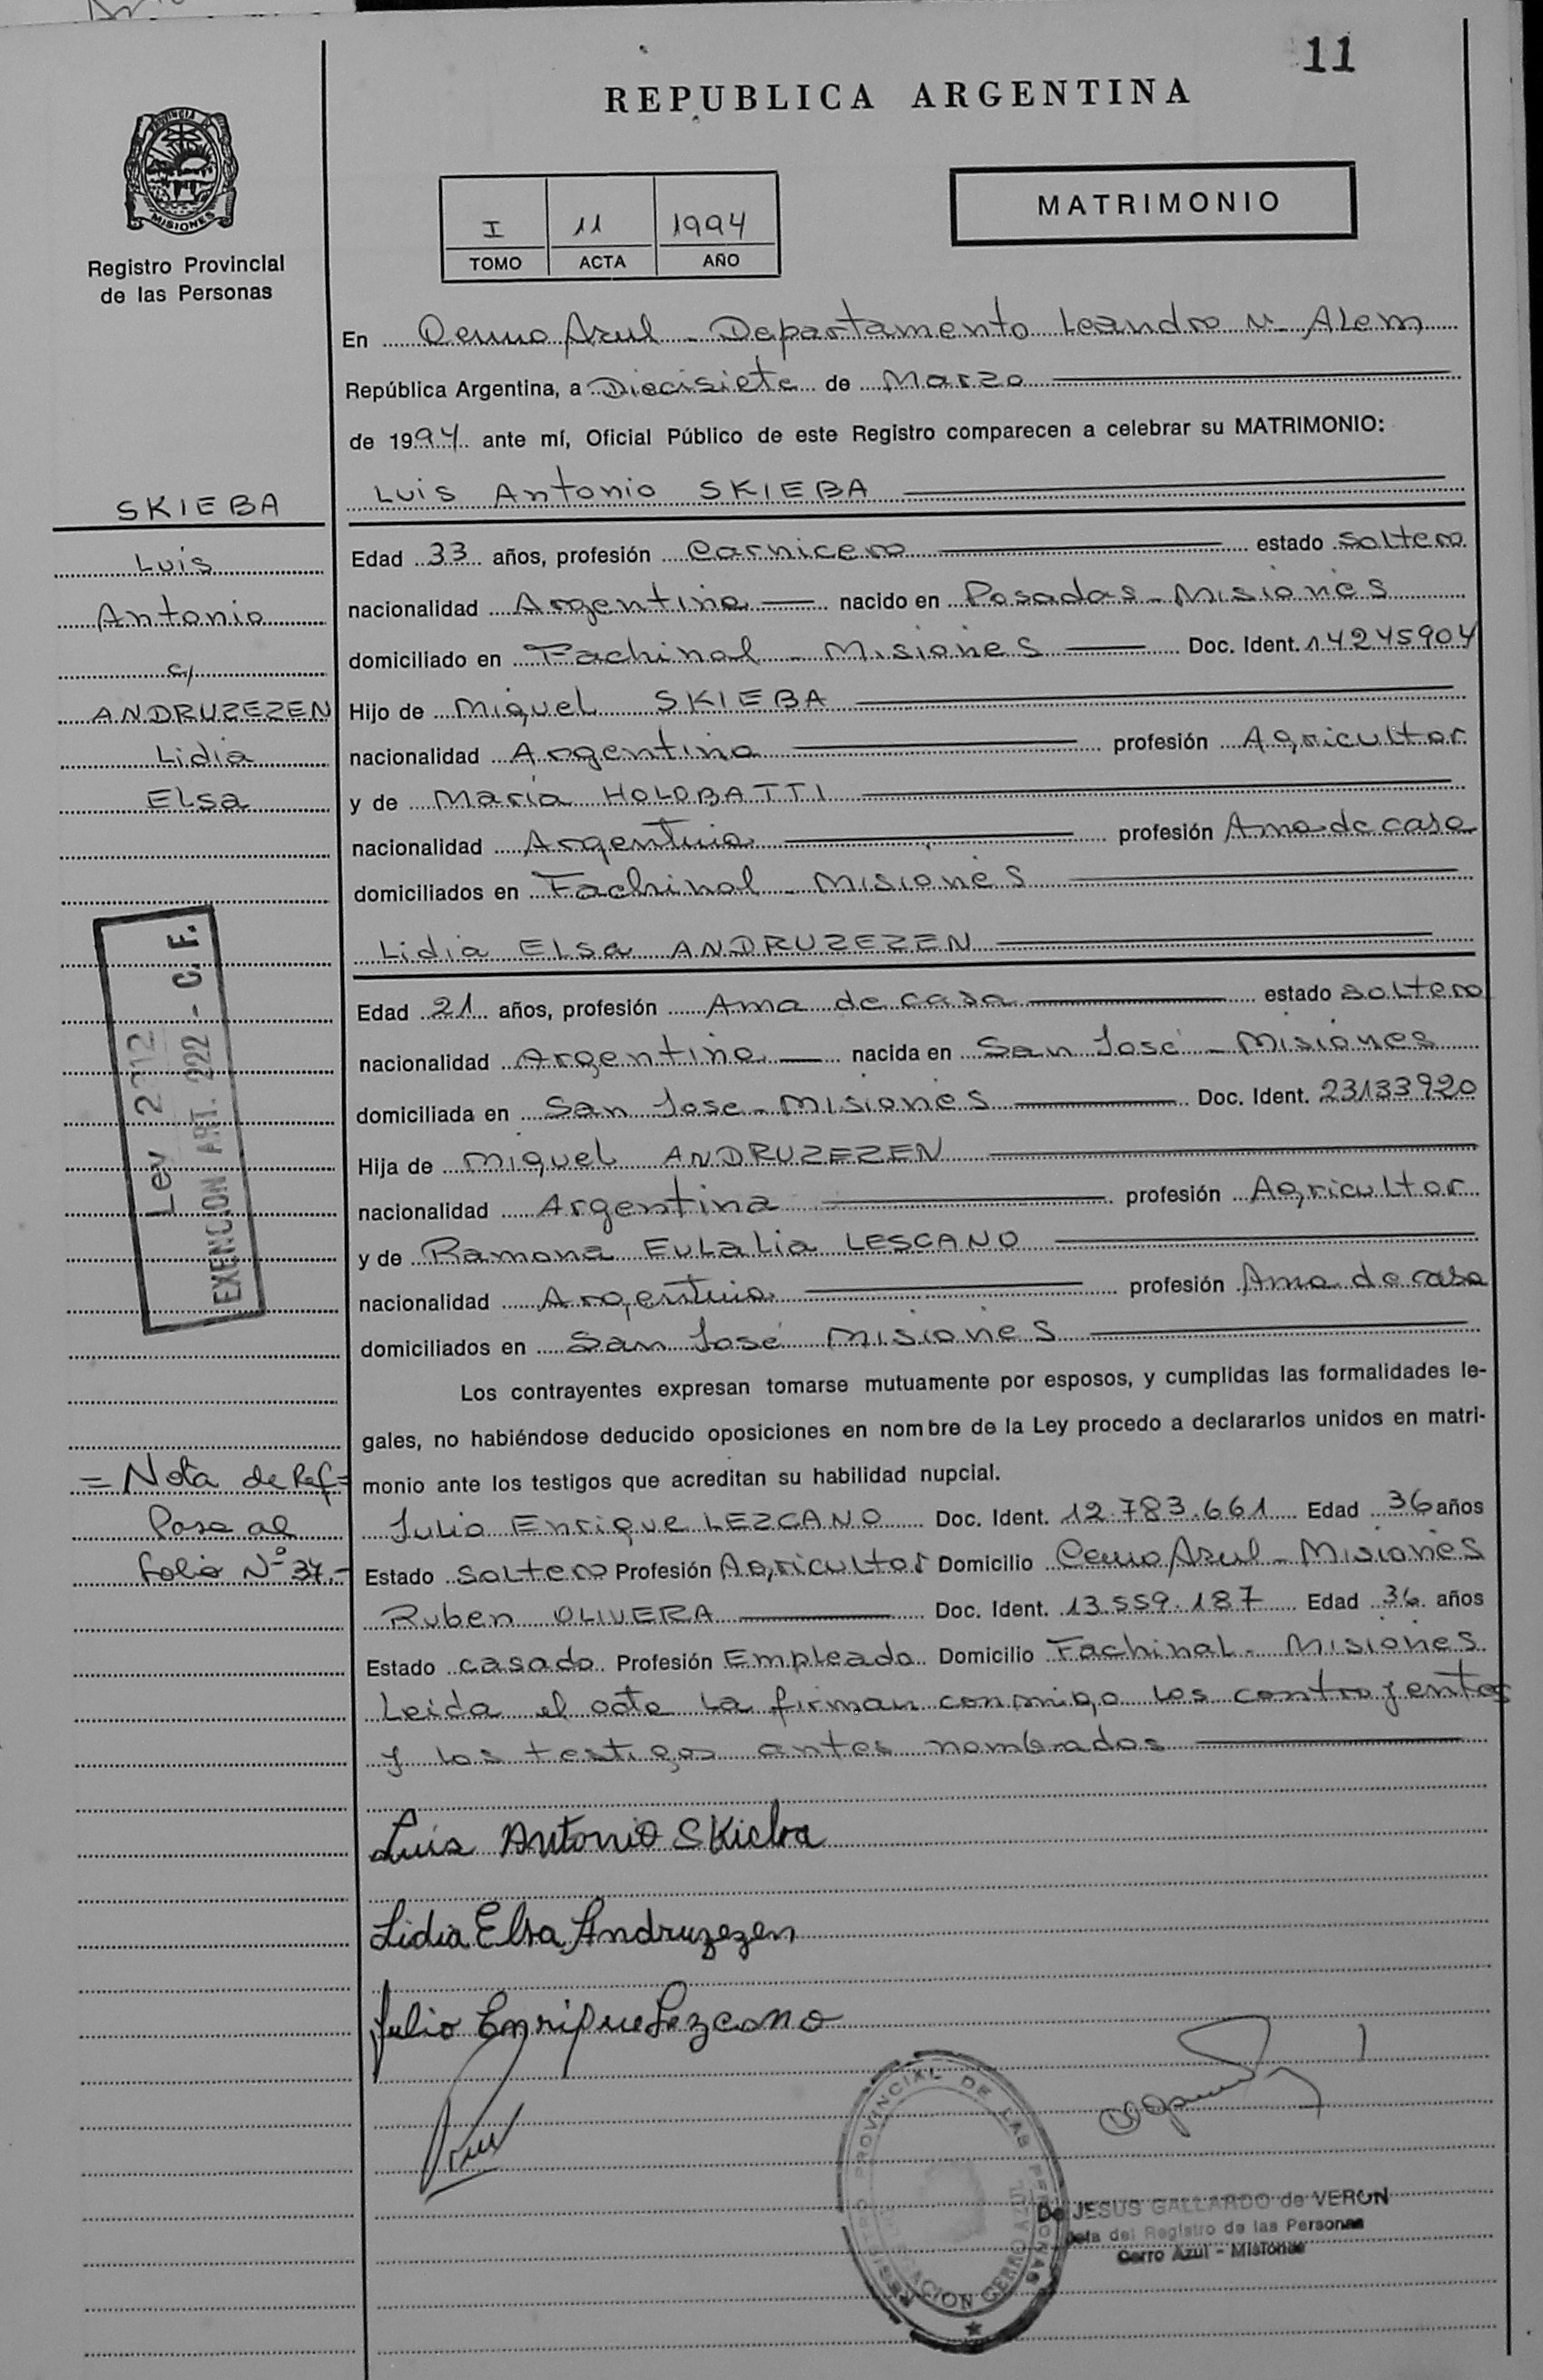 11
REPUBLICA ARGENTINA
PROVINCIA DE
MISIONES
Registro Provincial
de las Personas
I 11 1994
TOMO ACTA AÑO
MATRIMONIO
En Cerro Azul - Departamento Leandro N. Alem
República Argentina, a Diecisiete de Marzo
de 1994 ante mí, Oficial Público de este Registro comparecen a celebrar su MATRIMONIO:
Luis Antonio SKIEBA
Edad 33 años, profesión Carnicero estado soltero
nacionalidad Argentina nacido en Posadas - Misiones
domiciliado en Fachinal - Misiones Doc. Ident. 14245904
Hijo de Miguel SKIEBA
nacionalidad Argentina profesión Agricultor
y de Maria HOLOBATTI
nacionalidad Argentina profesión Ama de casa
domiciliados en Fachinal - Misiones
Lidia Elsa ANDRUZEZEN
Edad 21 años, profesión Ama de casa estado soltero
nacionalidad Argentina nacida en San José - Misiones
domiciliada en San Jose - Misiones Doc. Ident. 23133920
Hija de Miguel ANDRUZEZEN
nacionalidad Argentina profesión Agricultor
y de Ramona Eulalia LESCANO
nacionalidad Argentina profesión Ama de casa
domiciliados en San José Misiones
Los contrayentes expresan tomarse mutuamente por esposos, y cumplidas las formalidades le-
gales, no habiéndose deducido oposiciones en nombre de la Ley procedo a declararlos unidos en matri-
monio ante los testigos que acreditan su habilidad nupcial.
Julio Enrique LEZCANO Doc. Ident. 12.783.661 Edad 36 años
Estado soltero Profesión Agricultor Domicilio Cerro Azul - Misiones
Ruben OLIVERA Doc. Ident. 13.559.187 Edad 36 años
Estado casado Profesión Empleado Domicilio Fachinal - Misiones
Leida el acta la firman conmigo los contrayentes
y los testigos antes nombrados
SKIEBA
Luis
Antonio
c/
ANDRUZEZEN
Lidia
Elsa
Ley 2312
EXENCION ART. 222 - C. F.
= Nota de Ref =
Pase al
folio Nº 37.-
Luis Antonio Skieba
Lidia Elsa Andruzezen
Julio Enrique Lezcano
REGISTRO PROVINCIAL DE LAS PERSONAS
CERRO AZUL
De JESUS GALLARDO de VERON
Jefa del Registro de las Personas
Cerro Azul - Misiones